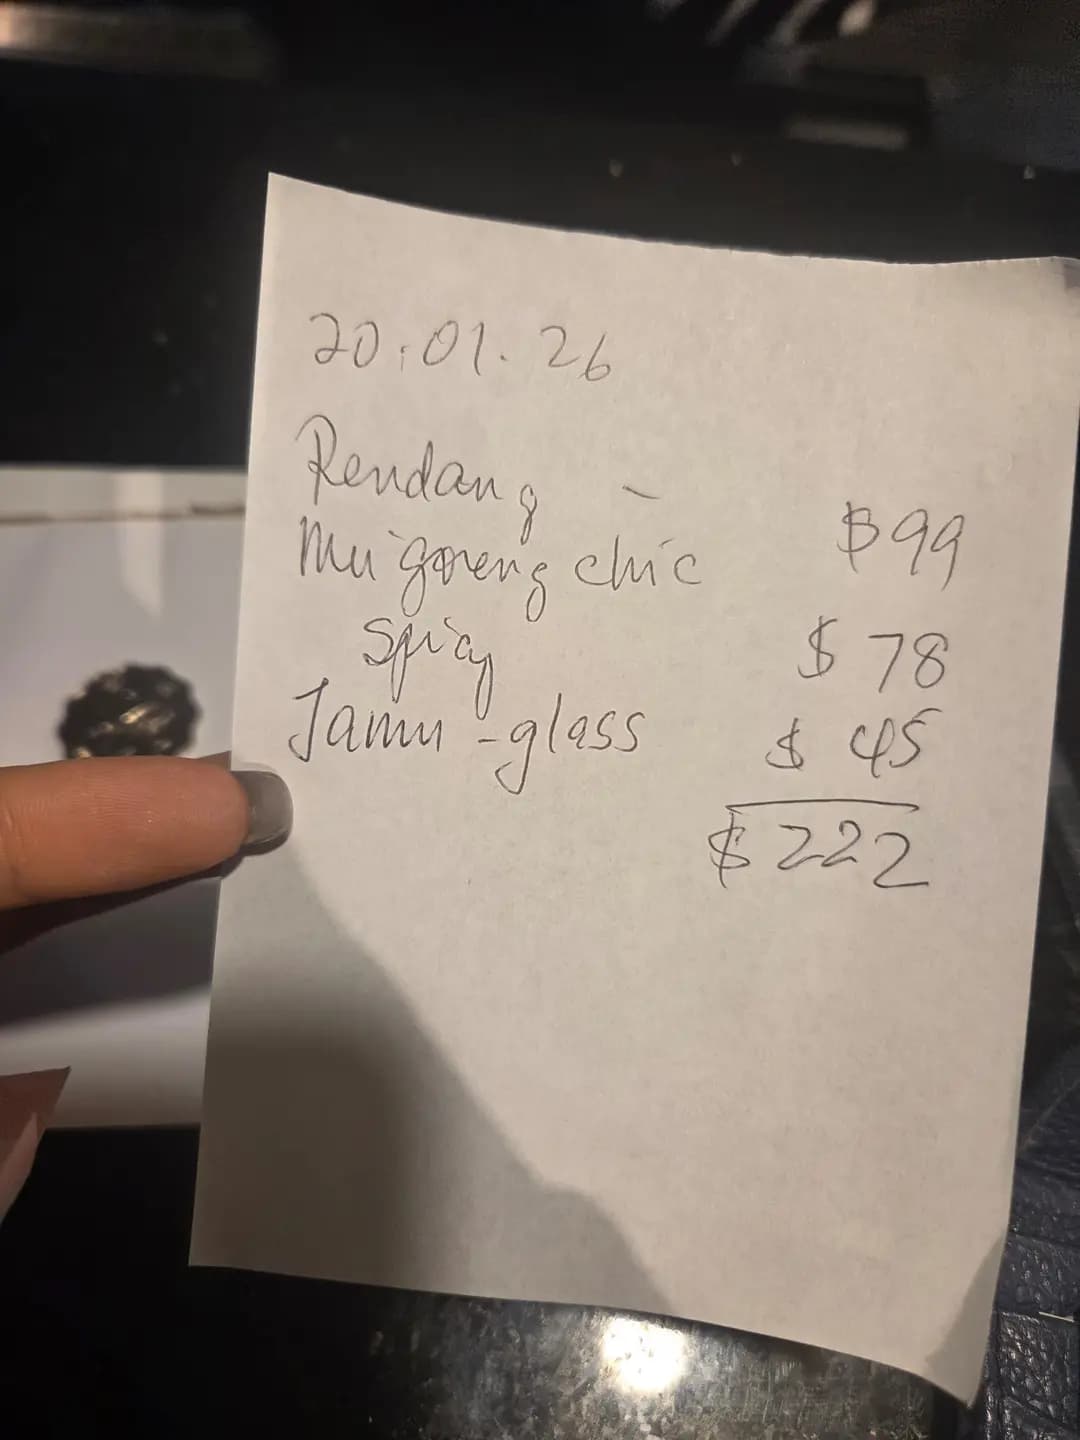 20.01.26
Rendang - $99
Mie goreng chic
spicy $78
Jamu - glass $45
$222